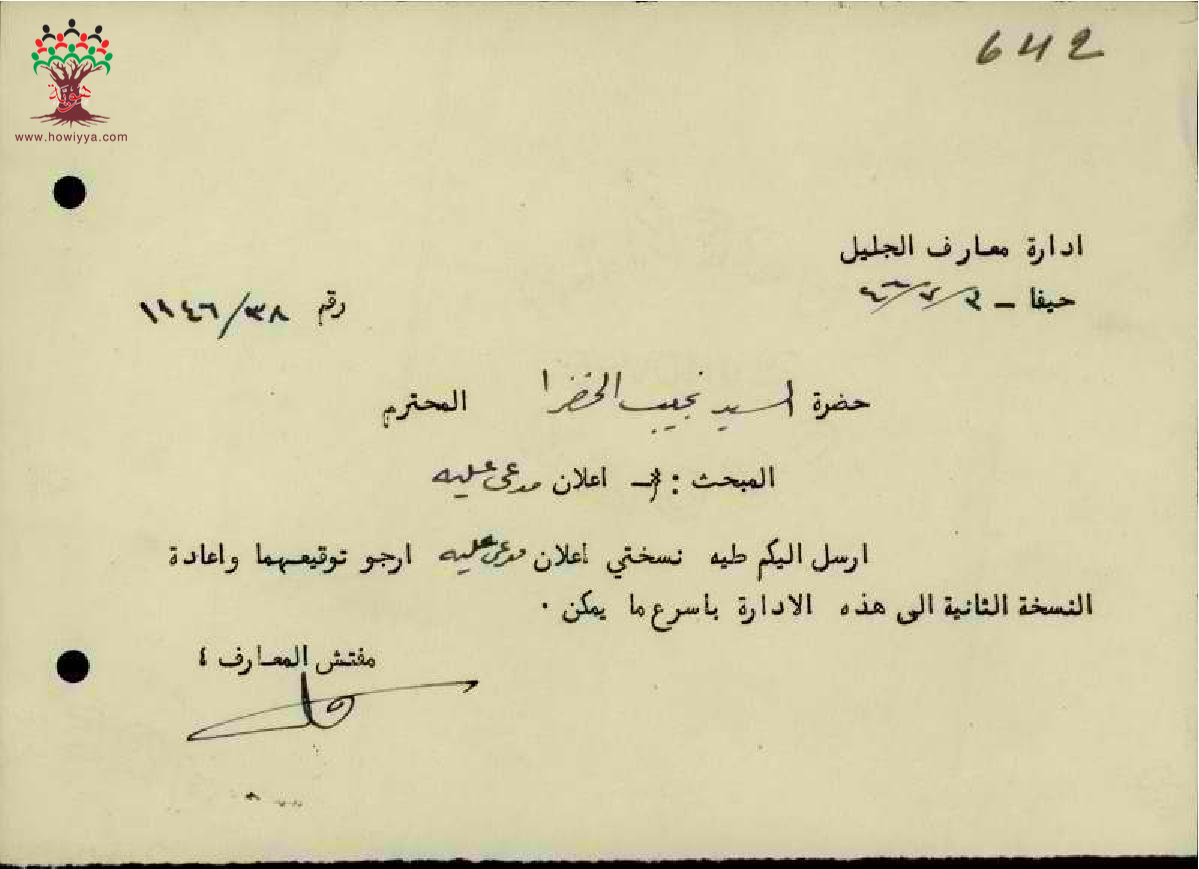 642
هوية
www.howiyya.com
ادارة معارف الجليل
حيفا - ٤٦/٧/٣
رقم ١١٤٦/٣٨
حضرة السيد نجيب الخضرا المحترم
المبحث : - اعلان مدعى عليه
ارسل اليكم طيه نسختي اعلان مدعى عليه ارجو توقيعهما واعادة
النسخة الثانية الى هذه الادارة باسرع ما يمكن .
مفتش المعارف ٤